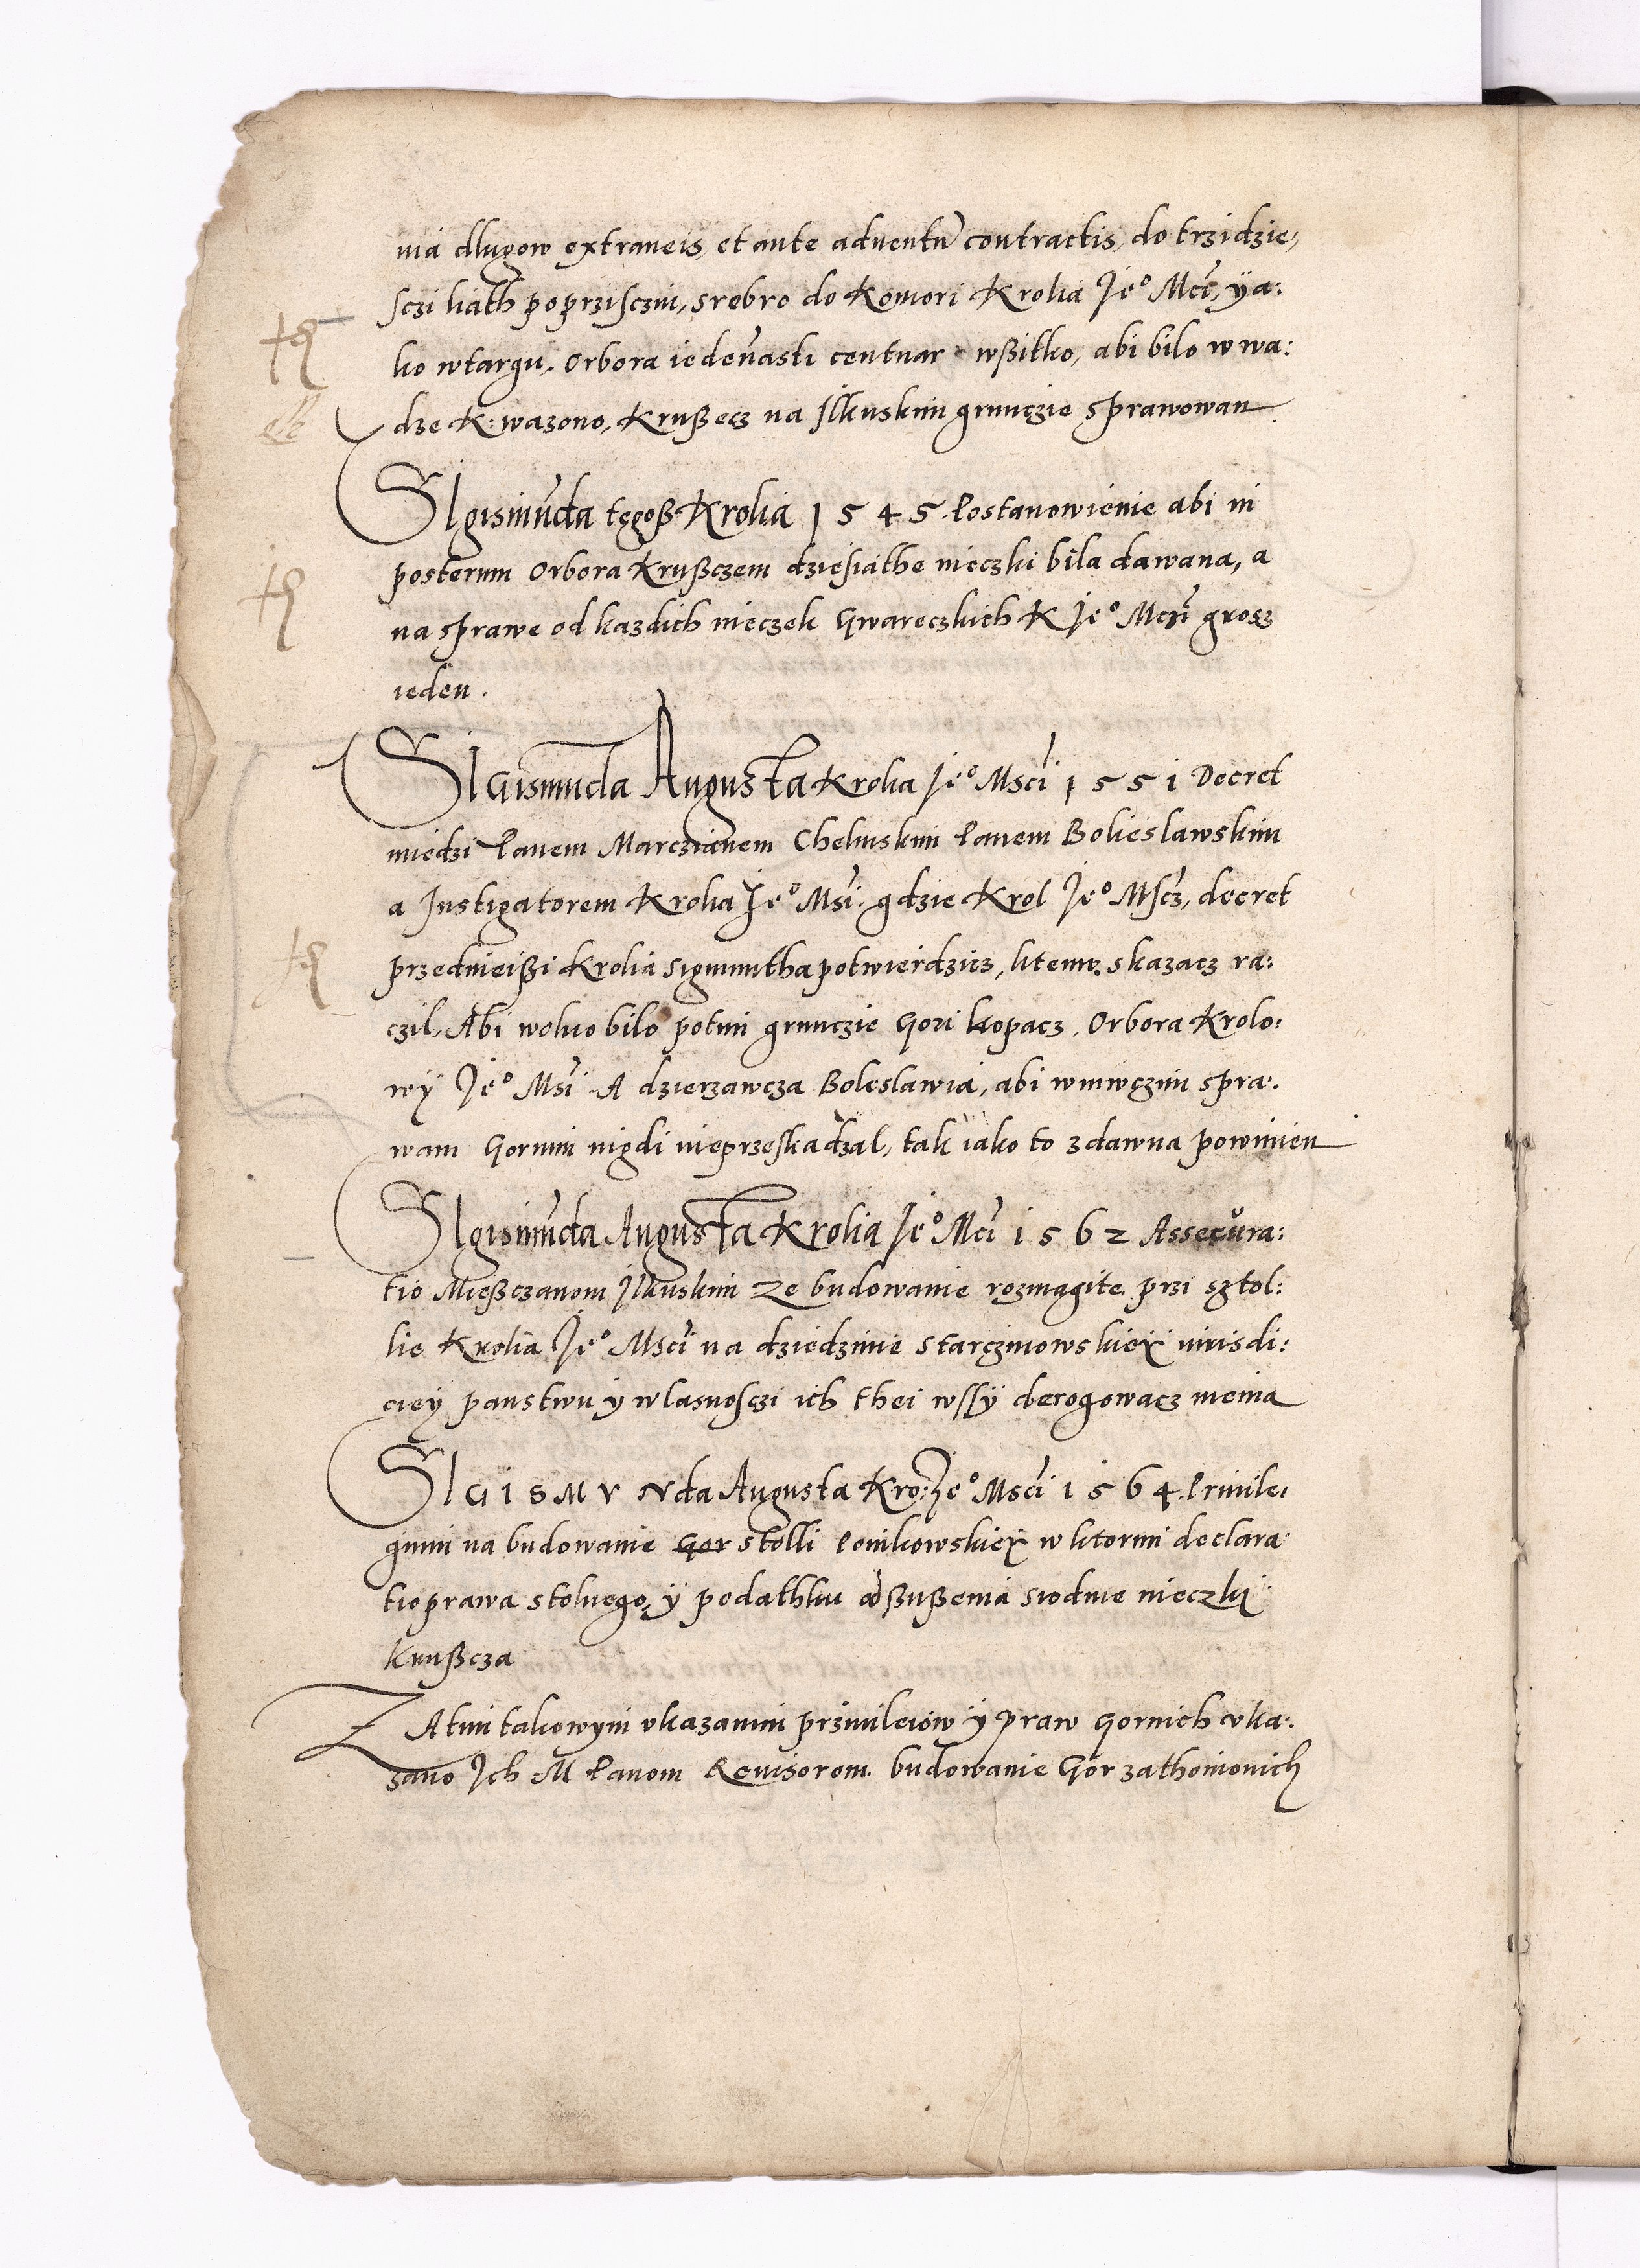 nia dlugow extraneis, et ante aduentũ contractis, do trzidzie,
sczi liath poprzisczni, srebro do Komori Krolia Je° Mci, ÿa:
ko wtargu. Orbora iedenasti centnar wßitko, abi bilo w wa:
dze K: wazono, Krußecz na Jlkuskim grunczie sprawowan
Sigismũda tegoß Krolia 1545. Postanowienie abi in
posterum Orbora Krußczem dziesiathe nieczki bila dawana, a
na sprawe od kazdich nieczek Gwareczkich K Je° Mczi grosz
ieden.
SIGismuda Augusta Krolia Je° Msci 1551 Decret
miedzi Panem Marczianem Chelmskim Panem Bolieslawskim
a Instigatorem Krolia Je° Msci. gdzie Krol Je° Mscz, decret
przednieißi Krolia Sigmuntha potwierdzicz, ktemu skazacz ra:
czil, Abi wolno bilo potim grunczie Gori kopacz. Orbora Krolo:
wÿ Je° Msci A dzierzawcza Boleslawia, abi wniwczim spra:
wam Gornim nigdi nieprzeskadzal, tak iako to zdawna powinien
Sigismũda Augusta Krolia Je° Mci 1562 Assecura:
tio Mießczanom Jlkuskim Ze budowanie rozmagite przi sztol:
lie Krolia Je° Msci na dziedzinie starczinowskieÿ iurisdi:
cieÿ panstwu ÿ wlasnosczi ich thei wssÿ derogowacz niema
SIGISMVNda Augusta Kro: Je° Msci 1564. Priuile:
gium na budowanie Gor stolli Ponikowskieÿ w ktorim declara:
tio prawa stolnego, ÿ podathku od ßußenia siodme nieczki
Krußcza
ZAtim takowym vkazanim priuileiow ÿ praw Gornich vka:
sano Jch M Panom Reuisorom budowanie Gor zathonionich